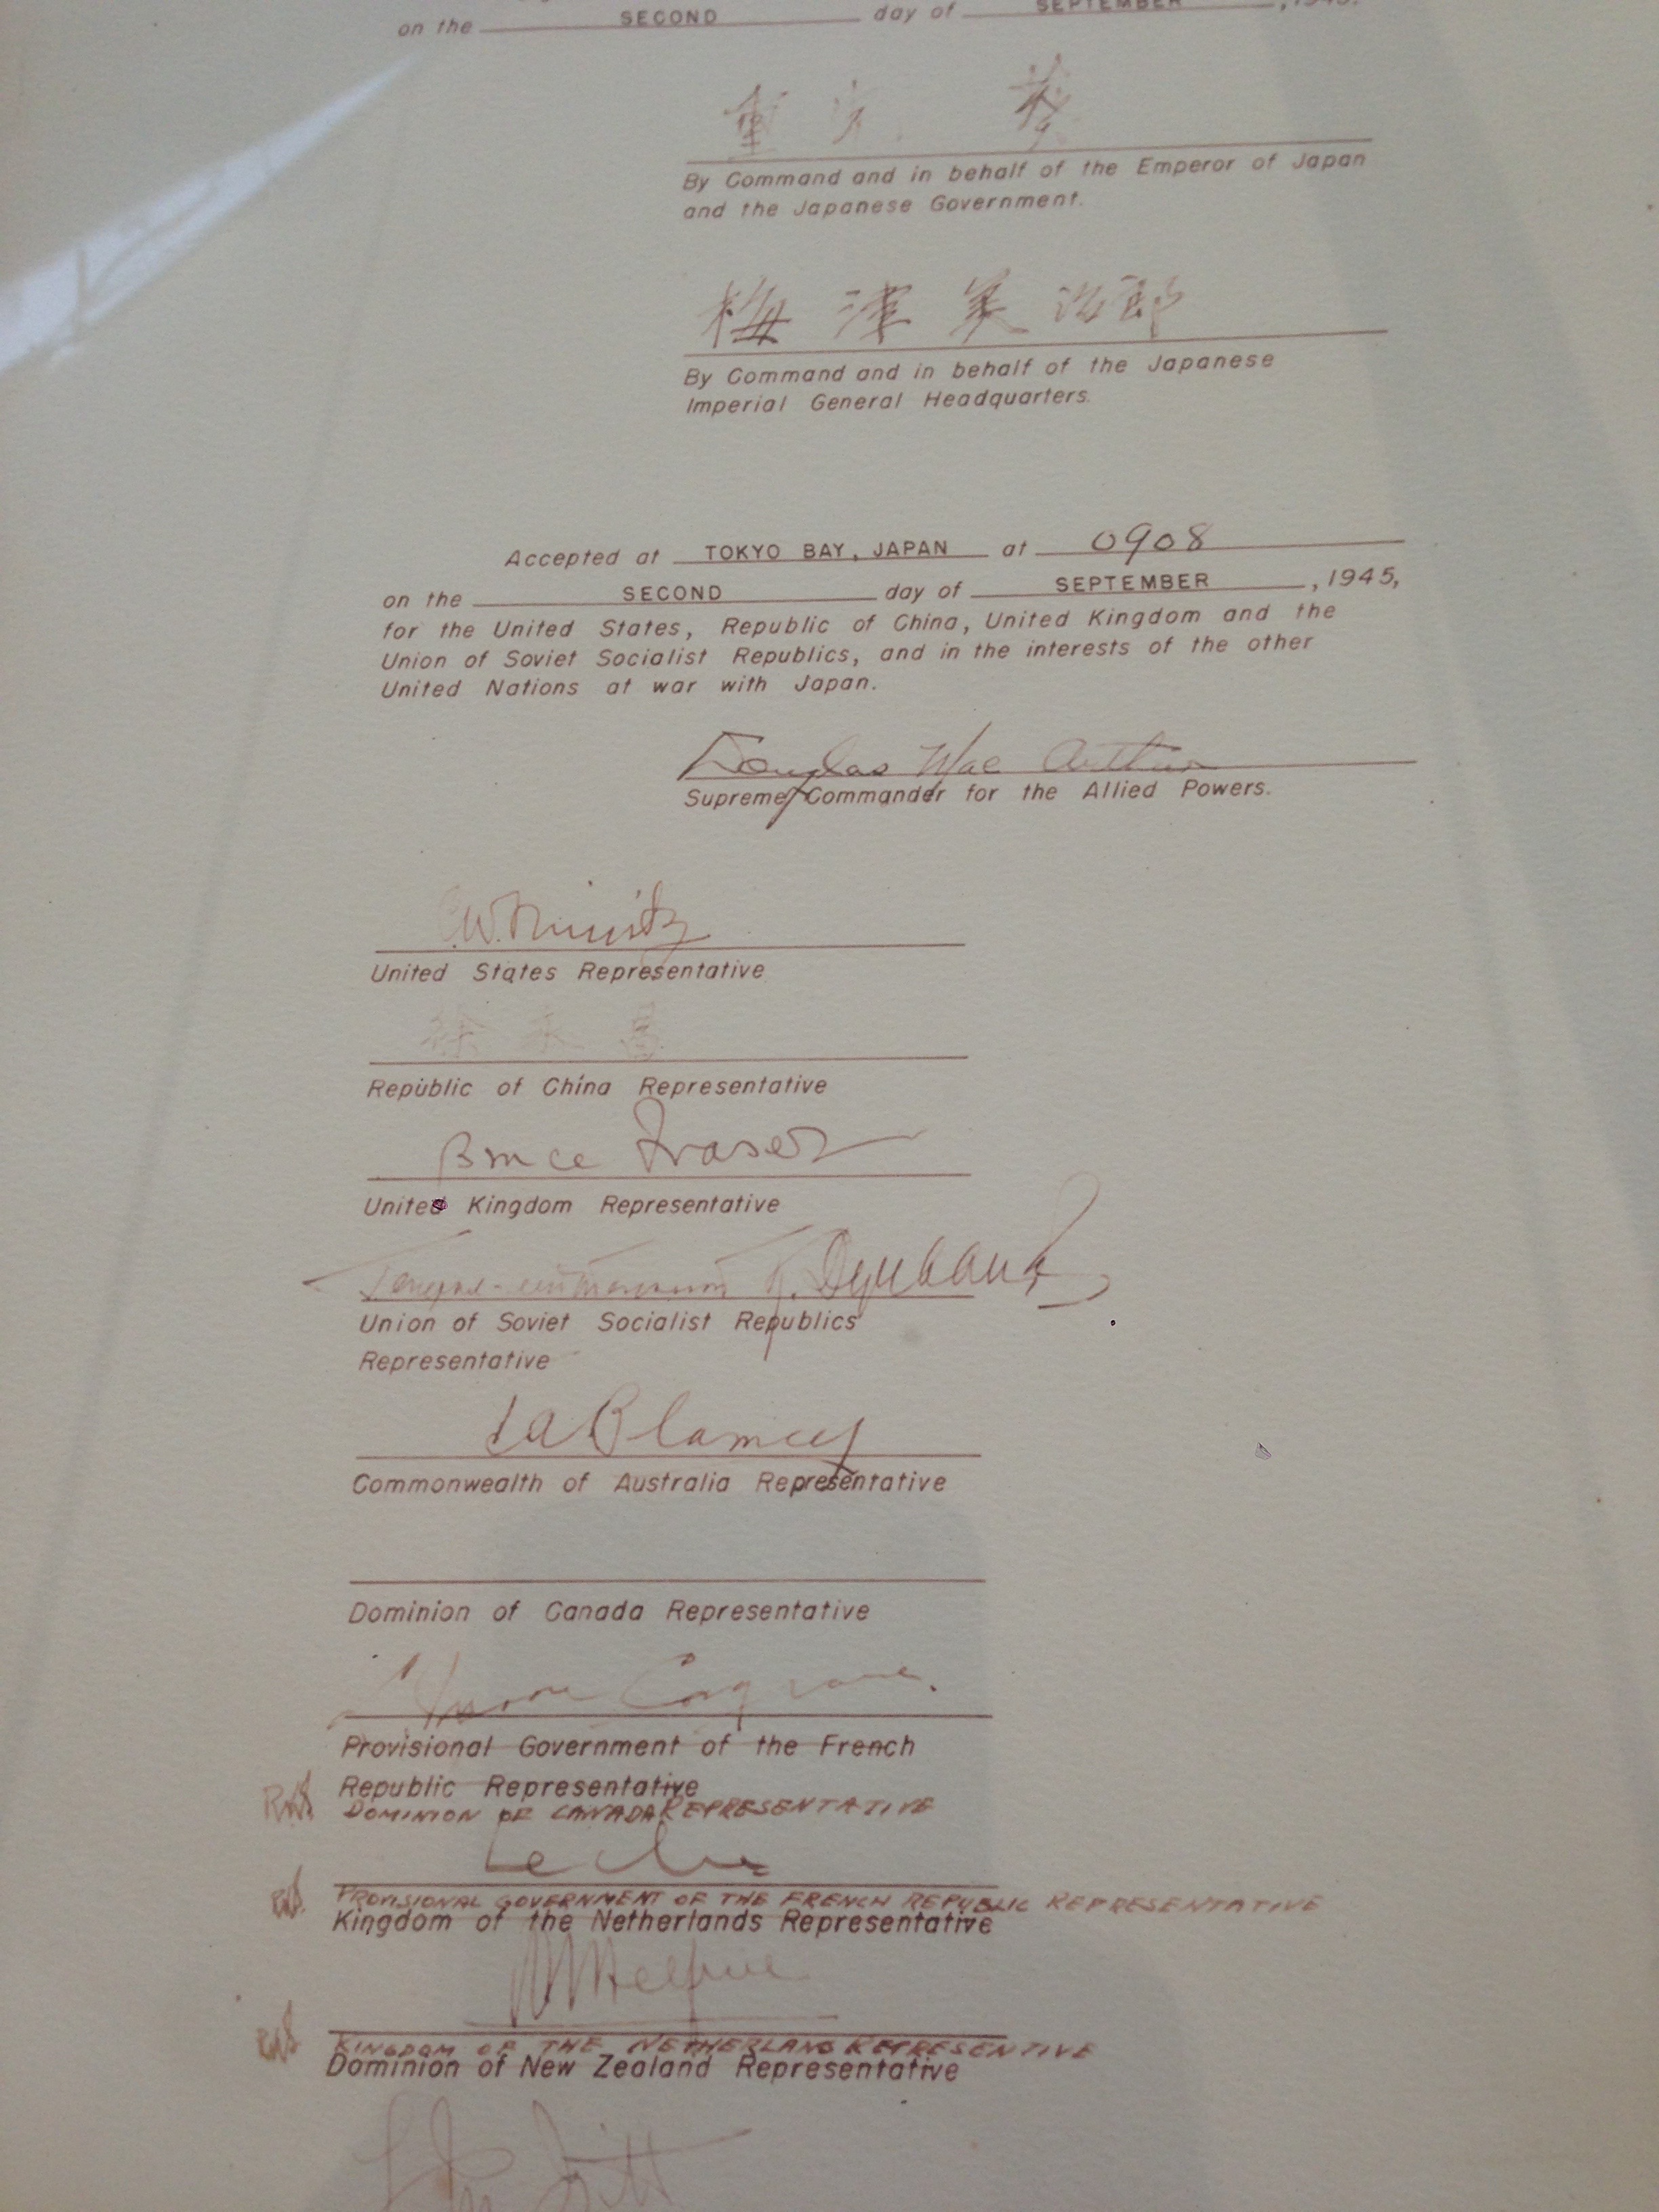 on the SECOND day of SEPTEMBER , 1945.
重光 葵
By Command and in behalf of the Emperor of Japan
and the Japanese Government.
梅津美治郎
By Command and in behalf of the Japanese
Imperial General Headquarters.
Accepted at TOKYO BAY, JAPAN at 0908
on the SECOND day of SEPTEMBER , 1945,
for the United States, Republic of China, United Kingdom and the
Union of Soviet Socialist Republics, and in the interests of the other
United Nations at war with Japan.
Douglas MacArthur
Supreme Commander for the Allied Powers.
C.W. Nimitz
United States Representative
徐永昌
Republic of China Representative
Bruce Fraser
United Kingdom Representative
Union of Soviet Socialist Republics
Representative
T A Blamey
Commonwealth of Australia Representative
Dominion of Canada Representative
Moore Cosgrave.
Provisional Government of the French
Republic Representative
DOMINION OF CANADA REPRESENTATIVE
Le Clerc
PROVISIONAL GOVERNMENT OF THE FRENCH REPUBLIC REPRESENTATIVE
Kingdom of the Netherlands Representative
Helfrich
KINGDOM OF THE NETHERLAND REPRESENTIVE
Dominion of New Zealand Representative